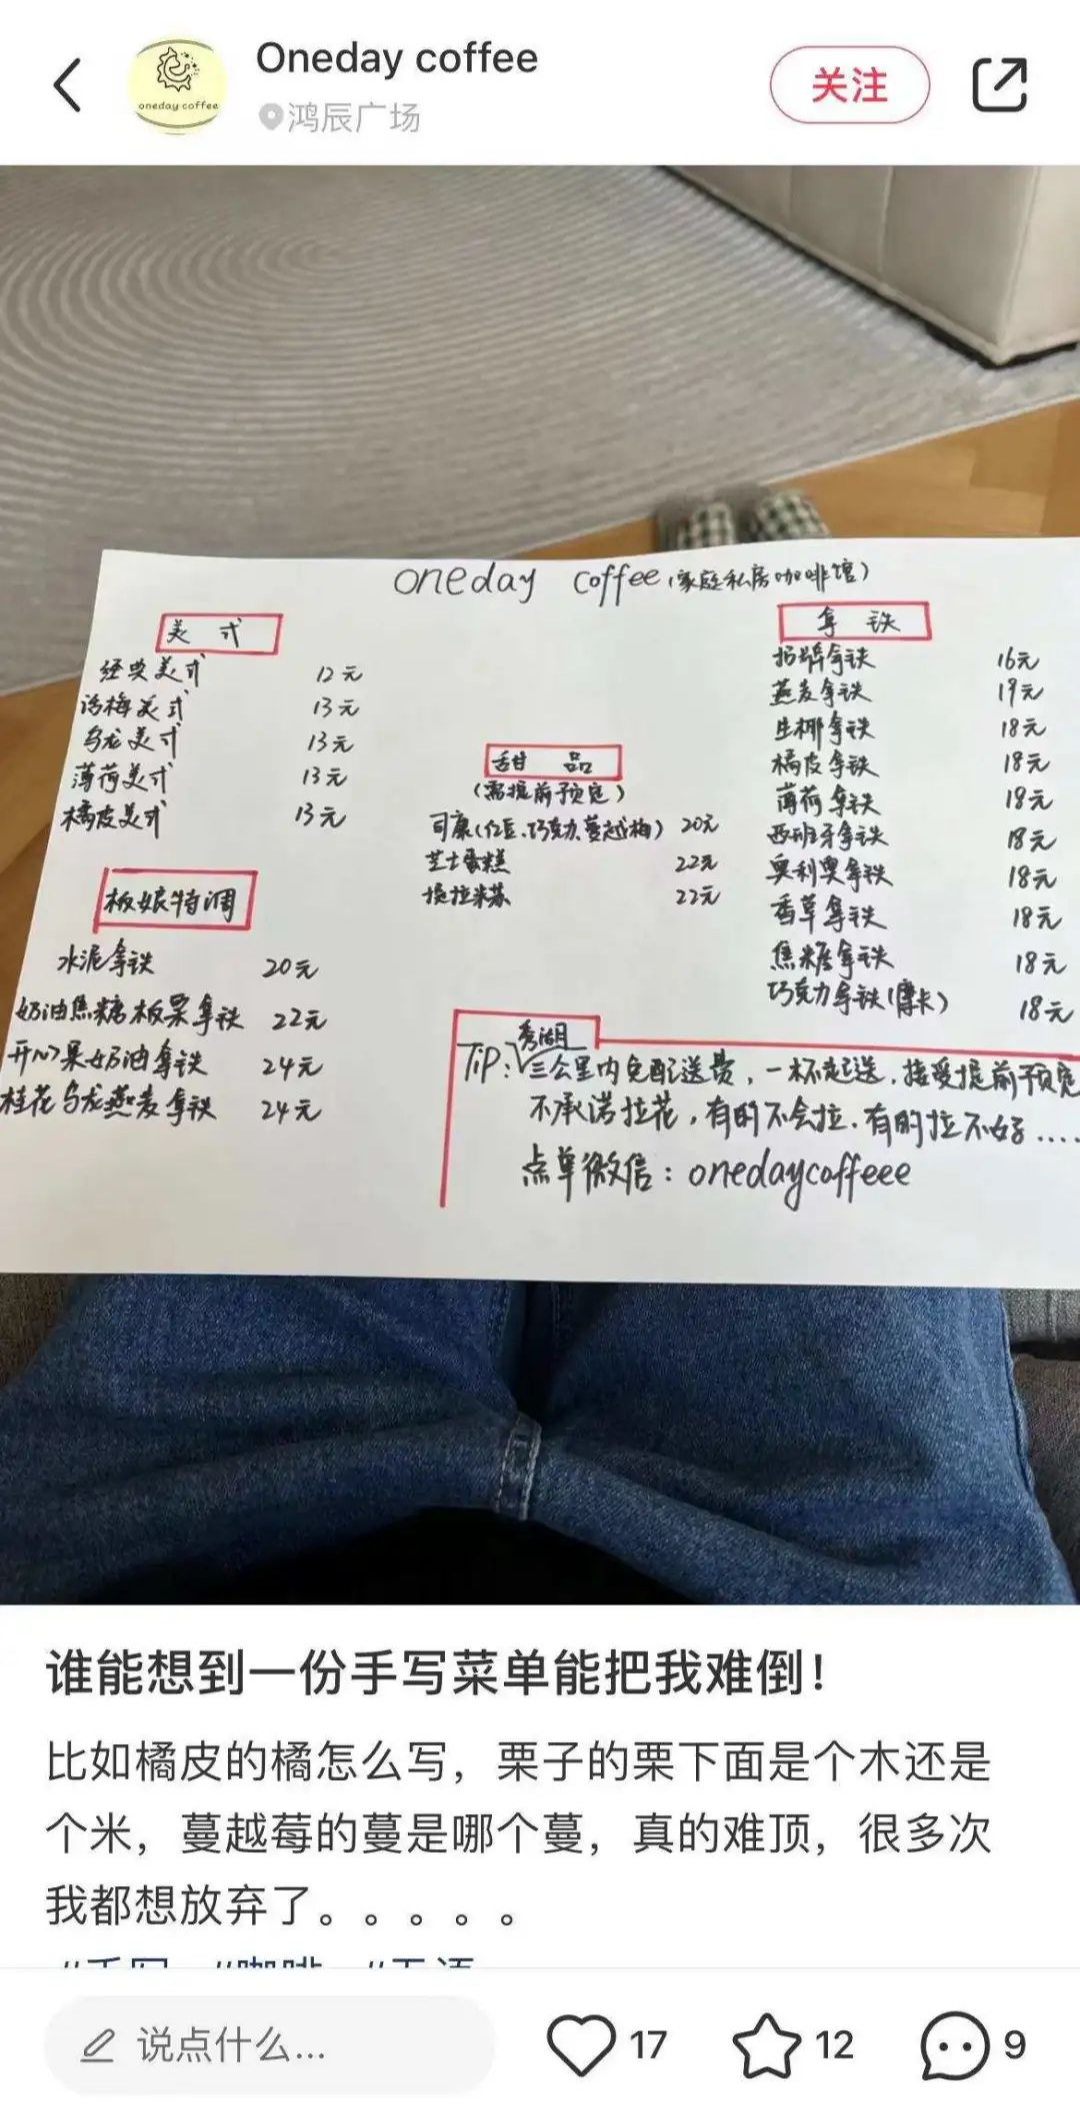 Oneday coffee
关注
oneday coffee
鸿辰广场
oneday coffee（家庭私房咖啡馆）
美式
经典美式 12元
话梅美式 13元
乌龙美式 13元
薄荷美式 13元
橘皮美式 13元
板娘特调
水泥拿铁 20元
奶油焦糖板栗拿铁 22元
开心果奶油拿铁 24元
桂花乌龙燕麦拿铁 24元
甜品
（需提前预定）
司康（红豆、巧克力、蔓越梅） 20元
芝士蛋糕 22元
提拉米苏 22元
拿铁
招牌拿铁 16元
燕麦拿铁 19元
生椰拿铁 18元
橘皮拿铁 18元
薄荷拿铁 18元
西班牙拿铁 18元
奥利奥拿铁 18元
香草拿铁 18元
焦糖拿铁 18元
巧克力拿铁（摩卡） 18元
Tip：秀湖三公里内免配送费，一杯起送，接受提前预定
不承诺拉花，有时不会拉，有时拉不好....
点单微信：onedaycoffeee
谁能想到一份手写菜单能把我难倒！
比如橘皮的橘怎么写，栗子的栗下面是个木还是
个米，蔓越莓的蔓是哪个蔓，真的难顶，很多次
我都想放弃了。。。。。
说点什么...
17
12
9